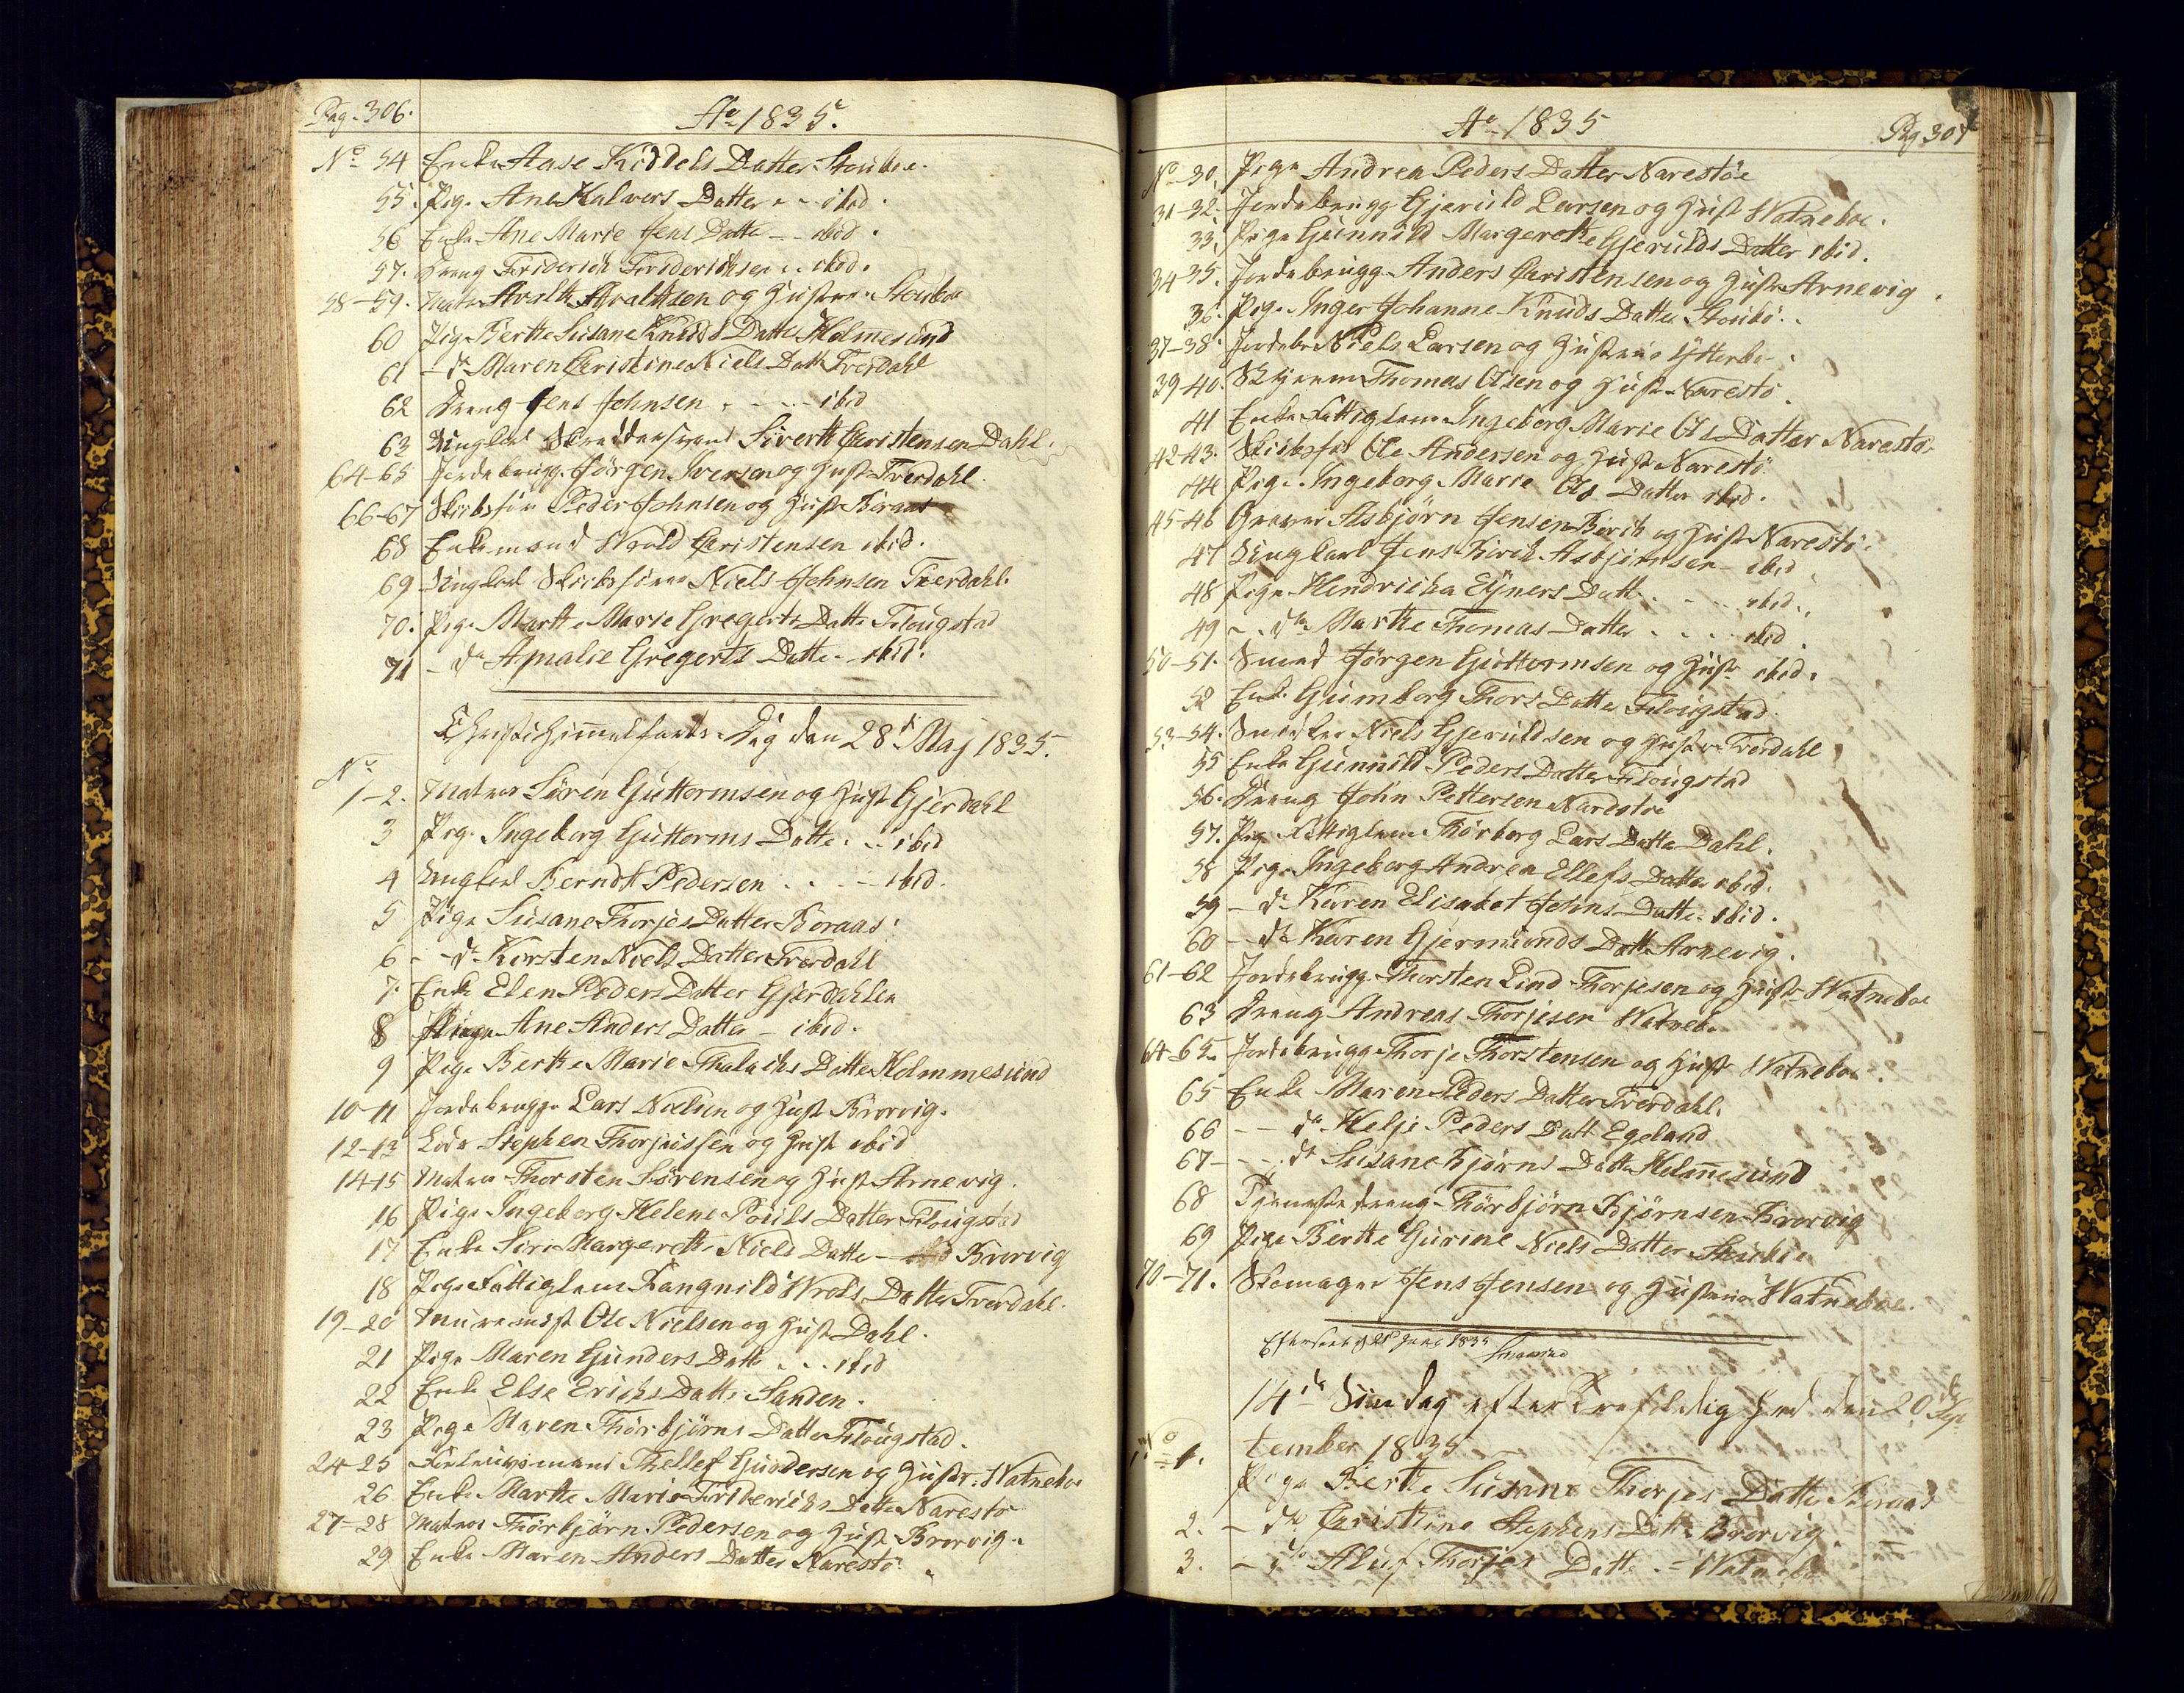 Pag. 306.
Ao 1835.
No 54 Enke Aase Kiddels Datter Stoubøe.
55. Pige Ane Halvors Datter .. ibid.
56 Enke Ane Marie Jens Datte - ibid.
57. Dreng Friderich Friderichsen .. ibid.
58-59. Matr og Hustrue Stouboe
60 Pig. Berthe Susane Knuds Datte Holmesund
61 - do Maren Christine Niels Datt Tverdahl
62 Dreng Jens Johnsen .. ibid
63 Ungkarl Sivert Christensen Dahl.
64-65 Jordebrugg. Jørgen Iversen og Hust Tverdahl.
66-67 Skibsfør Peder Johnsen og Hust Boraas
68 Enkemand Wrold Christensen ibid.
69 Ungkarl Skibsfører Niels Johnsen Tverdahl.
70. Pige Marthe Marie Gregerts Datte Flougstad
71 - do Amalie Gregerts Datte - ibid.
Christi Himmelfarts Dag den 28de Maj 1835.
No
1-2. Matros Søren Guttormsen og Hust Gjerdahl
3 Pige Ingeborg Guttorms Datte .. ibid
4 Ungkarl Berndt Pedersen .. - ibid.
5 Pige Susane Thorjes Datter Boraas.
6 - do Kirsten Niels Datter Tverdahl
7. Enke Elen Peders Datter Gjerdahlen
8 Pige Ane Anders Datter - ibid.
9 Pige Berthe Marie Datte Holmmesund
10-11 Jordebrugge Lars Nielsen og Hust Brorvig.
12-13 Lods Stephen Thorjussen og Hust ibid
14-15 Matros Thorsten Sørensen og Hust Arnevig.
16 Pige Ingeborg Helene Pouls Datter Flougstad
17 Enke Siri Margerethe Niels Datte - Brorvig
18 Pige Fattiglem Rangnild Wrols Datter Tverdahl.
19-20 Ole Nielsen og Hust Dahl.
21 Pige Maren Gunders Datt ... ibid
22 Enke Else Erichs Datte Sanden.
23 Pige Maren Thorbjørns Datter Flougstad.
24-25 Thellef og Hustr. Watneboe
26. Enke Marthe Marie Friderichs Datte Narestø
27-28 Matros Thorbjørn Pedersen og Hust Brorvig.
29 Enke Maren Anders Datter Narestø.
Ao 1835
Pag 307
No 30. Pige Andrea Peders Datter Narestøe
31-32. Jordebrugg. Gjeruld Larsen og Hust Watneboe.
33. Pige Gunnild Margerethe Gjerulds Datter ibid.
34-35. Jordebrugg. Anders Christensen og Hustr Arnevig.
36. Pige Inger Johanne Knuds Datter Stoubø..
37-38. Jordebr Niels Larsen og Hustrue Ytterboe.
39-40. Thomas Olsen og Hustr Narestø.
41 Enke Fattiglem Ingeborg Marie Ols Datter Narestø
42-43. Skibsfør Ole Andersen og Hust Narestø.
44 Pige Ingeborg Marie Ols Datter ibid.
45-46 Asbjørn Jensen og Hustr Narestø.
47 Ungkarl Jens Asbjørnsen - ibid
48 Pige Hendricha Eyners Datt .. ibid.
49 - do Marthe Thomas Datter .... ibid.
50-51. Smed Jørgen Guttormsen og Hustr ibid.
52 Enke Gumborg Thors Datte Flougstad.
53-54. Snidker Niels Gjeruldsen og Hustr Tverdahl
55 Enke Gunnild Peders Datter Flougstad
56. Dreng John Pettersen Narestøe
57. Pig. Fattiglem Thorborg Lars Datte Dahl.
58 Pige Ingeborg Andrea Ellefs Datter ibid.
59 - do Karen Elisabet Johns Datte ibid.
60 - do Karen Gjermunds Datt Arnevig.
61-62 Jordebrugg. Thorsten Lind Thorjesen og Hustr Watneboe
63 Dreng Andreas Thorjesen Watneb.
64-65. Jordebrugg. Thorje Thorstensen og Hustr Watneboe.
65 Enke Maren Peders Datter Tverdahl.
66 - - do Helje Peders Datt Egeland
67 - - do Susane Bjørns Datte Holmesund
68 Tjenestedreng Thorbjørn Bjørnsen Brorvig
69 Pige Berthe Gurine Niels Datter Stoubøe
70-71. Skomager Jens Jensen og Hustrue Watneboe.
Efterseet d 21 Juni 1835
14de Søndag efter Trefoldighed den 20de Sep
tember 1835
No 1. Pige Berthe Susane Thorjes Datte Boraas
2. - do Christine Stephens Datte Brorvig.
3. - do Thorjes Datt. - Watnebo